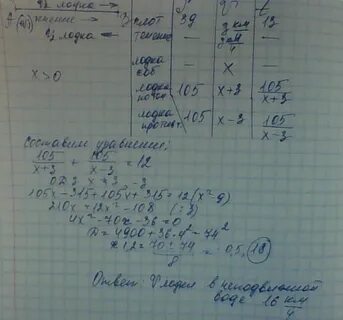 лодка
A (90) течение
лодка
x > 0
плот 39 3 км/ч 13
течение — 3 км/ч —
лодка соб — x —
лодка по теч 105 x+3 105/(x+3)
лодка против т 105 x-3 105/(x-3)
Составим уравнение:
105/(x+3) + 105/(x-3) = 12
ОДЗ x ≠ 3, -3
105x - 315 + 105x + 315 = 12(x² - 9)
210x = 12x² - 108 (:3)
4x² - 70x - 36 = 0
D = 4900 + 36·4² = 74²
x 1,2 = (70 ± 74)/8 = -0,5, 18
Ответ: V лодки в неподвижной
воде 16 км/ч